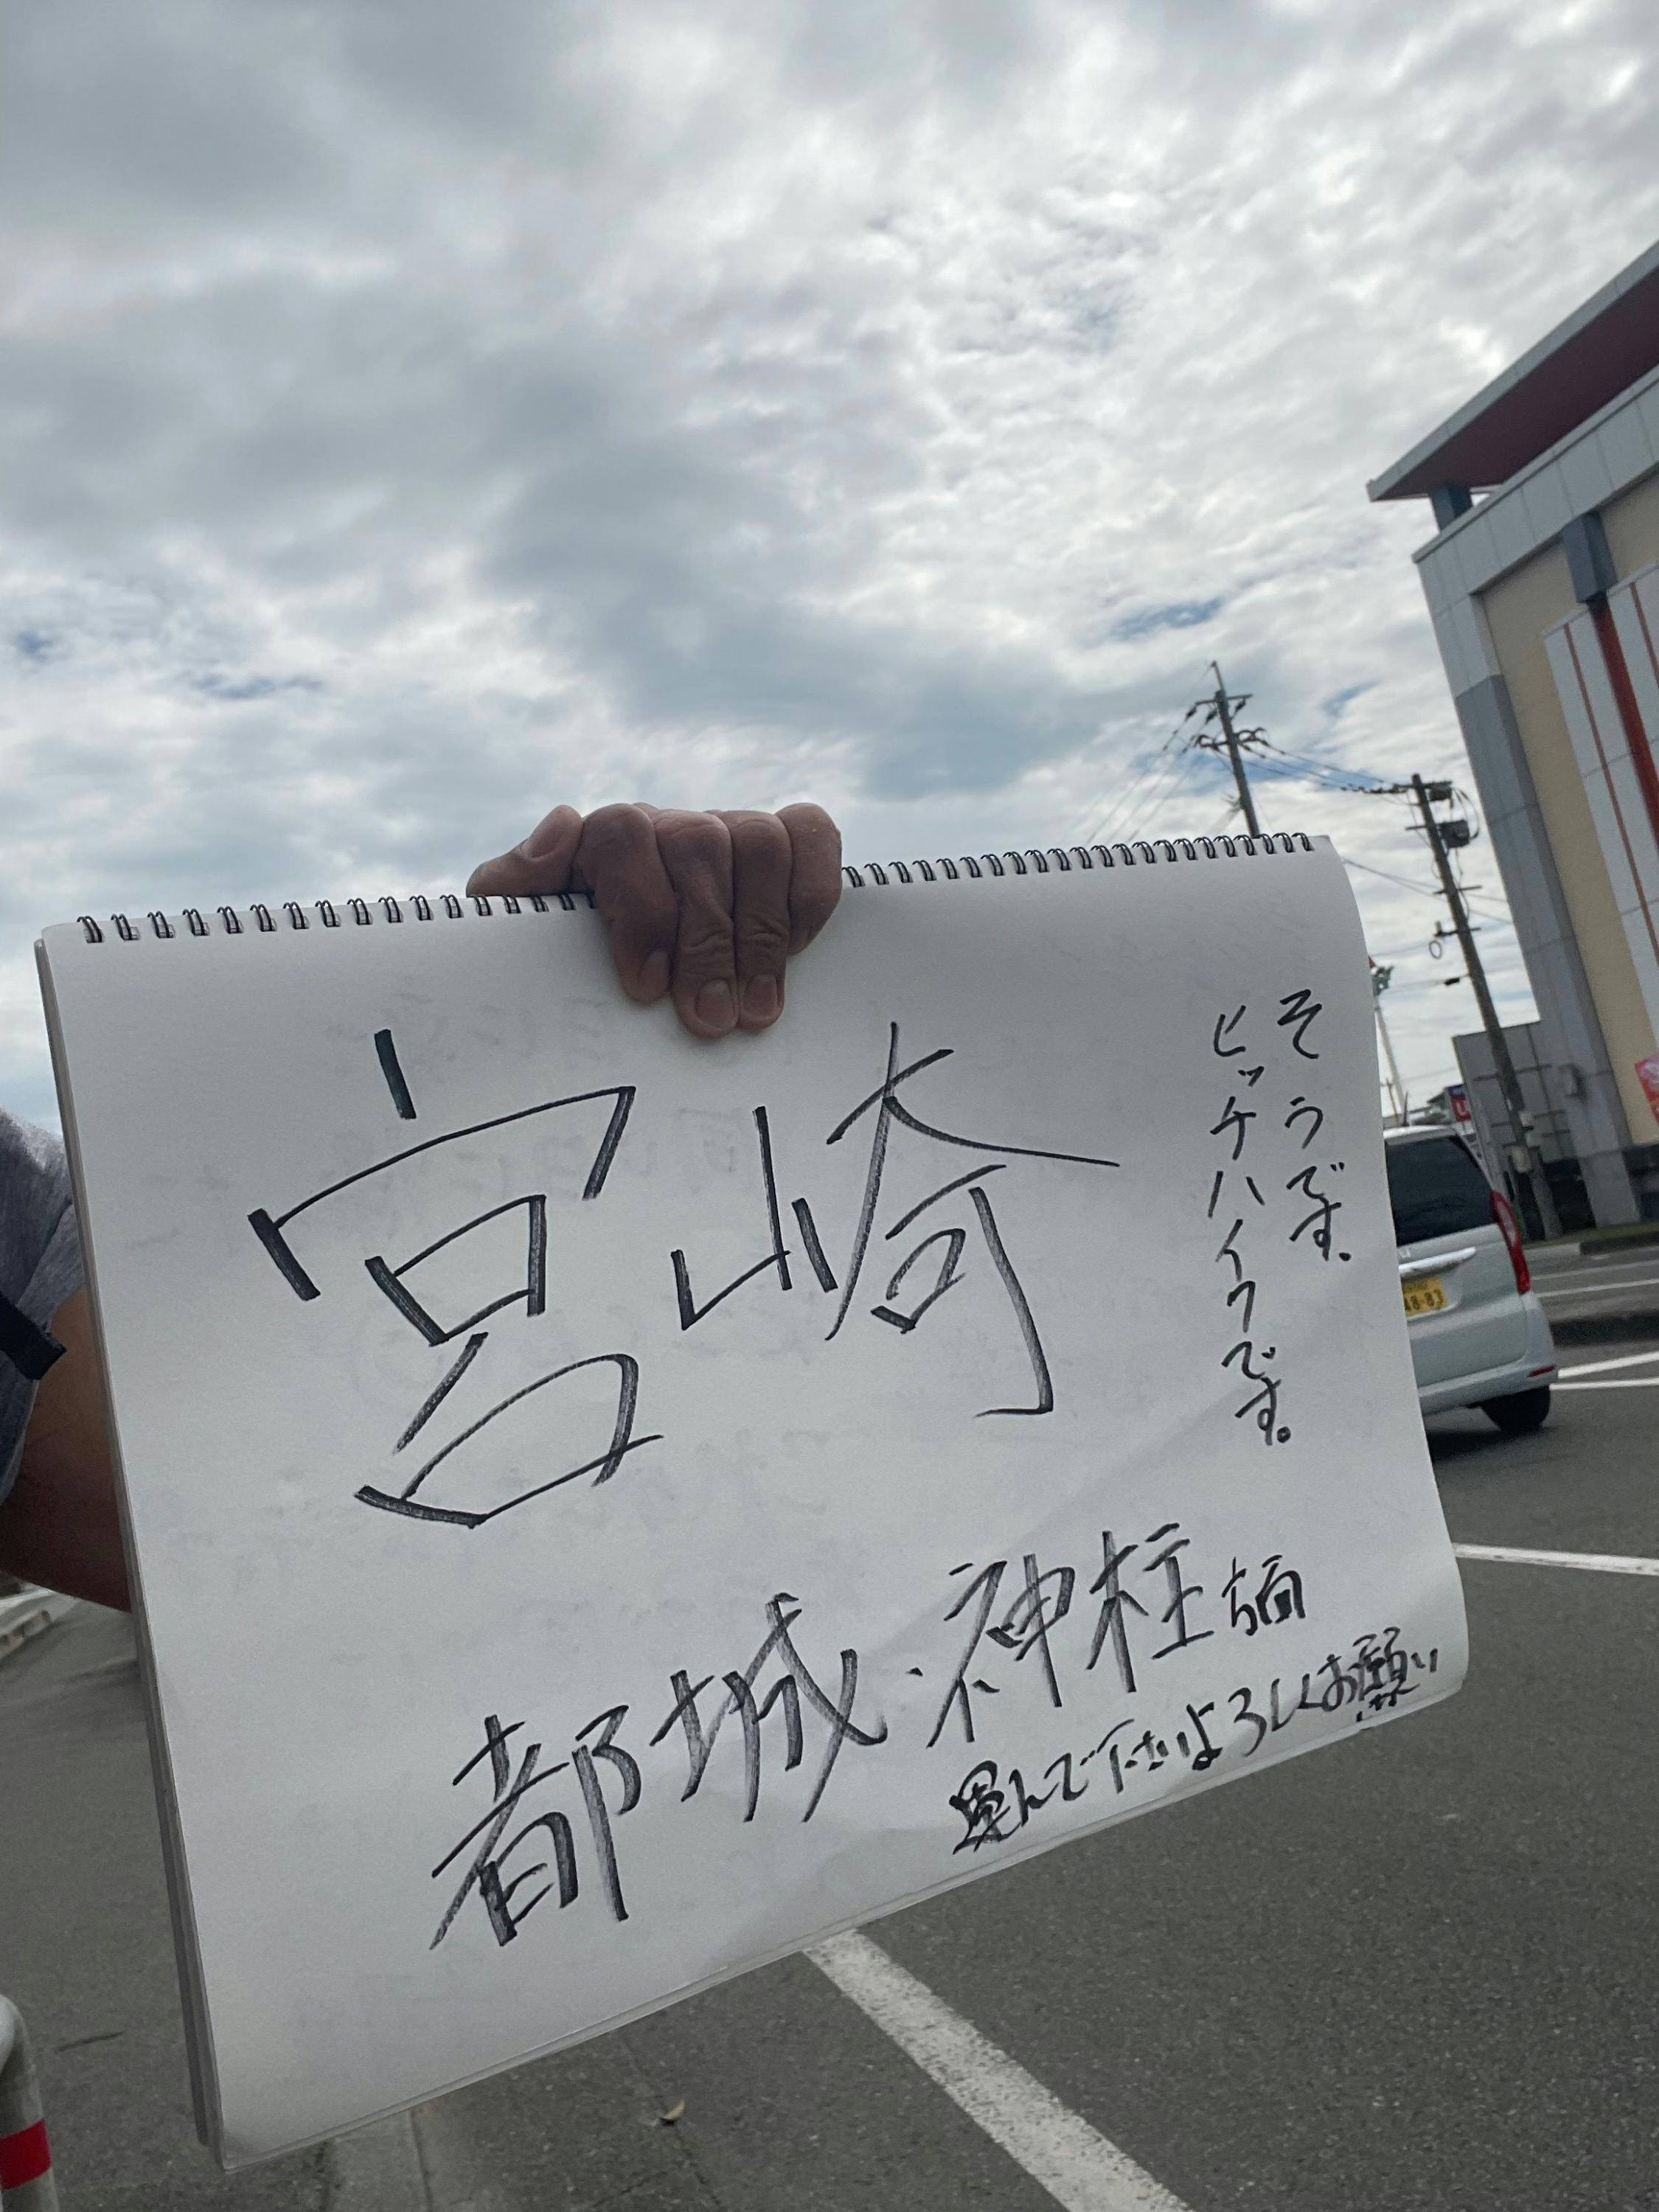 そうです。
ヒッチハイクです。
宮崎
都城・神柱方面
運んで下さいよろしくお願い
48-83